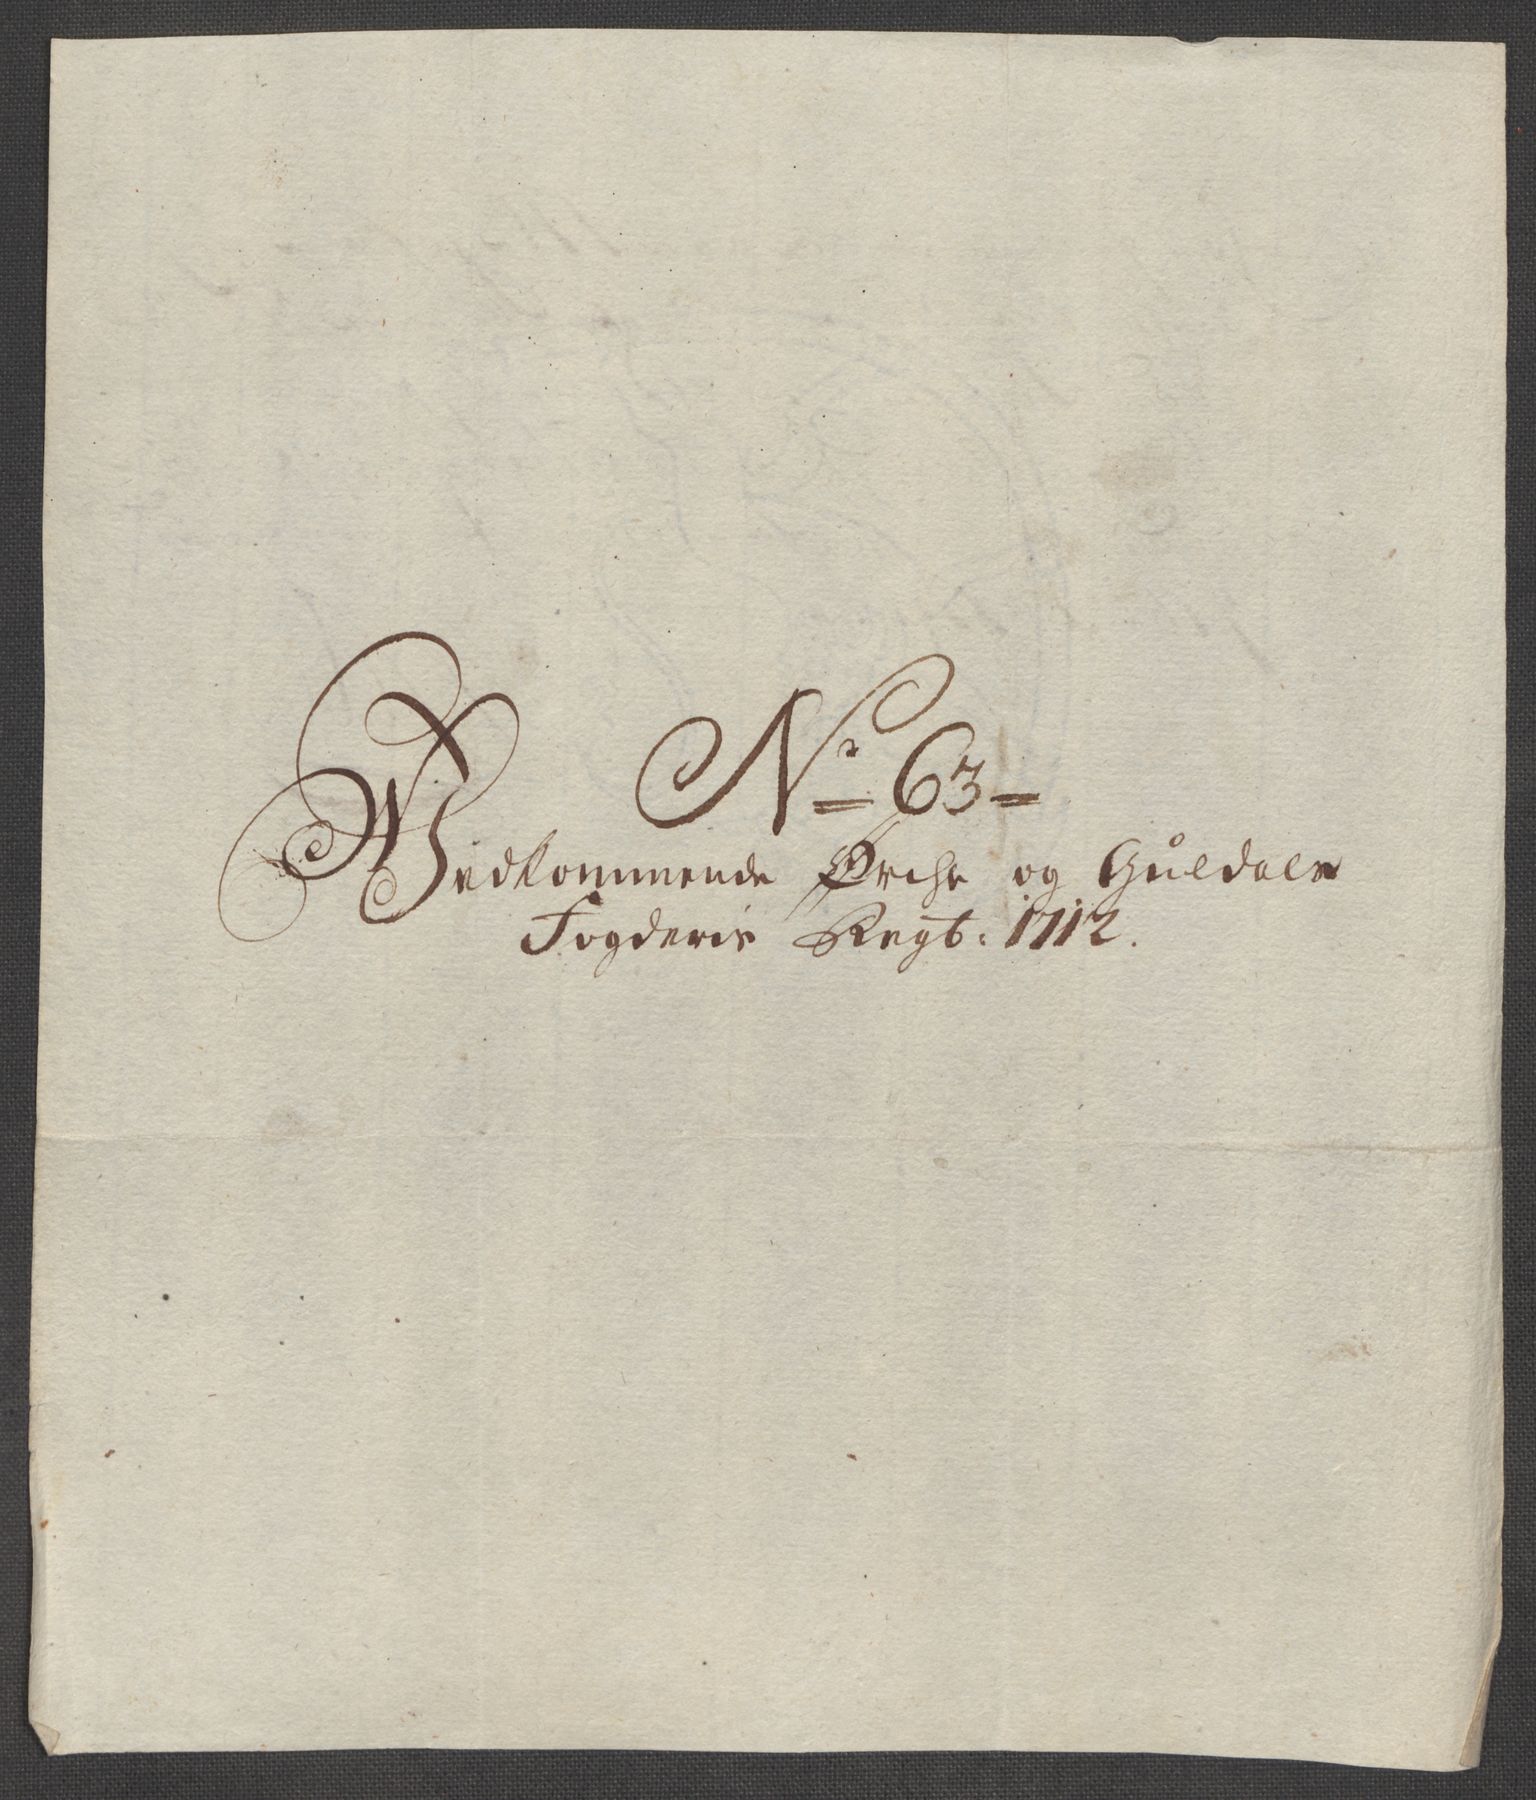 No 63
Wedkommende Ørche og Guldals
Fogderie Regb: 1712.